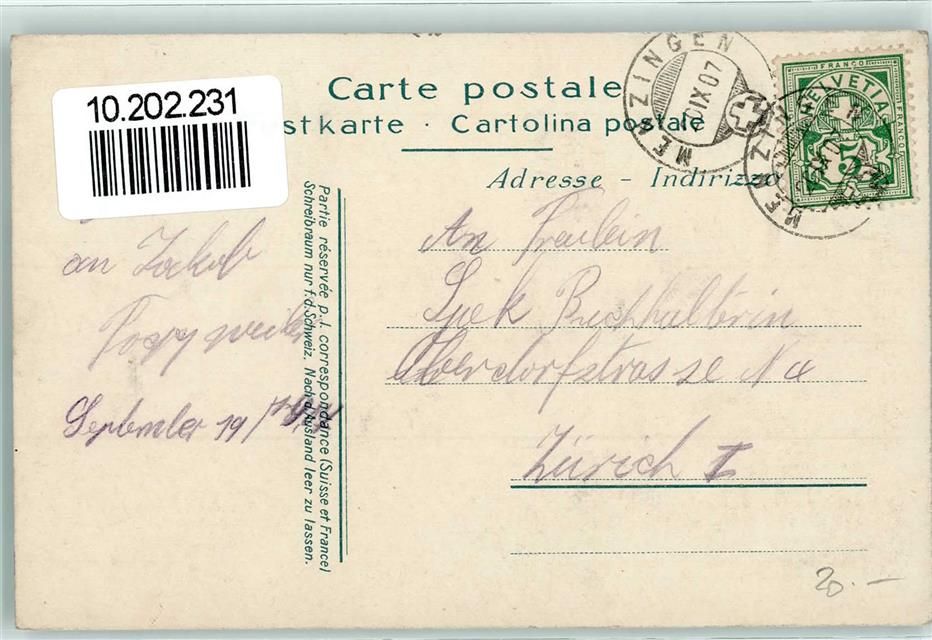 10.202.231
Carte postale
stkarte · Cartolina postale
Adresse – Indirizzo
MENZINGEN
IX 07
HELVETIA
FRANCO
FRANCO
5
MENZINGEN
Partie réservée p. l. correspondance (Suisse et France)
Schreibraum nur f. d. Schweiz. Nach d. Ausland leer zu lassen.
an Jakob
September 19
An Freulein
Spek Buchhalterin
Oberdorfstrasse No
Zürich I
20.–